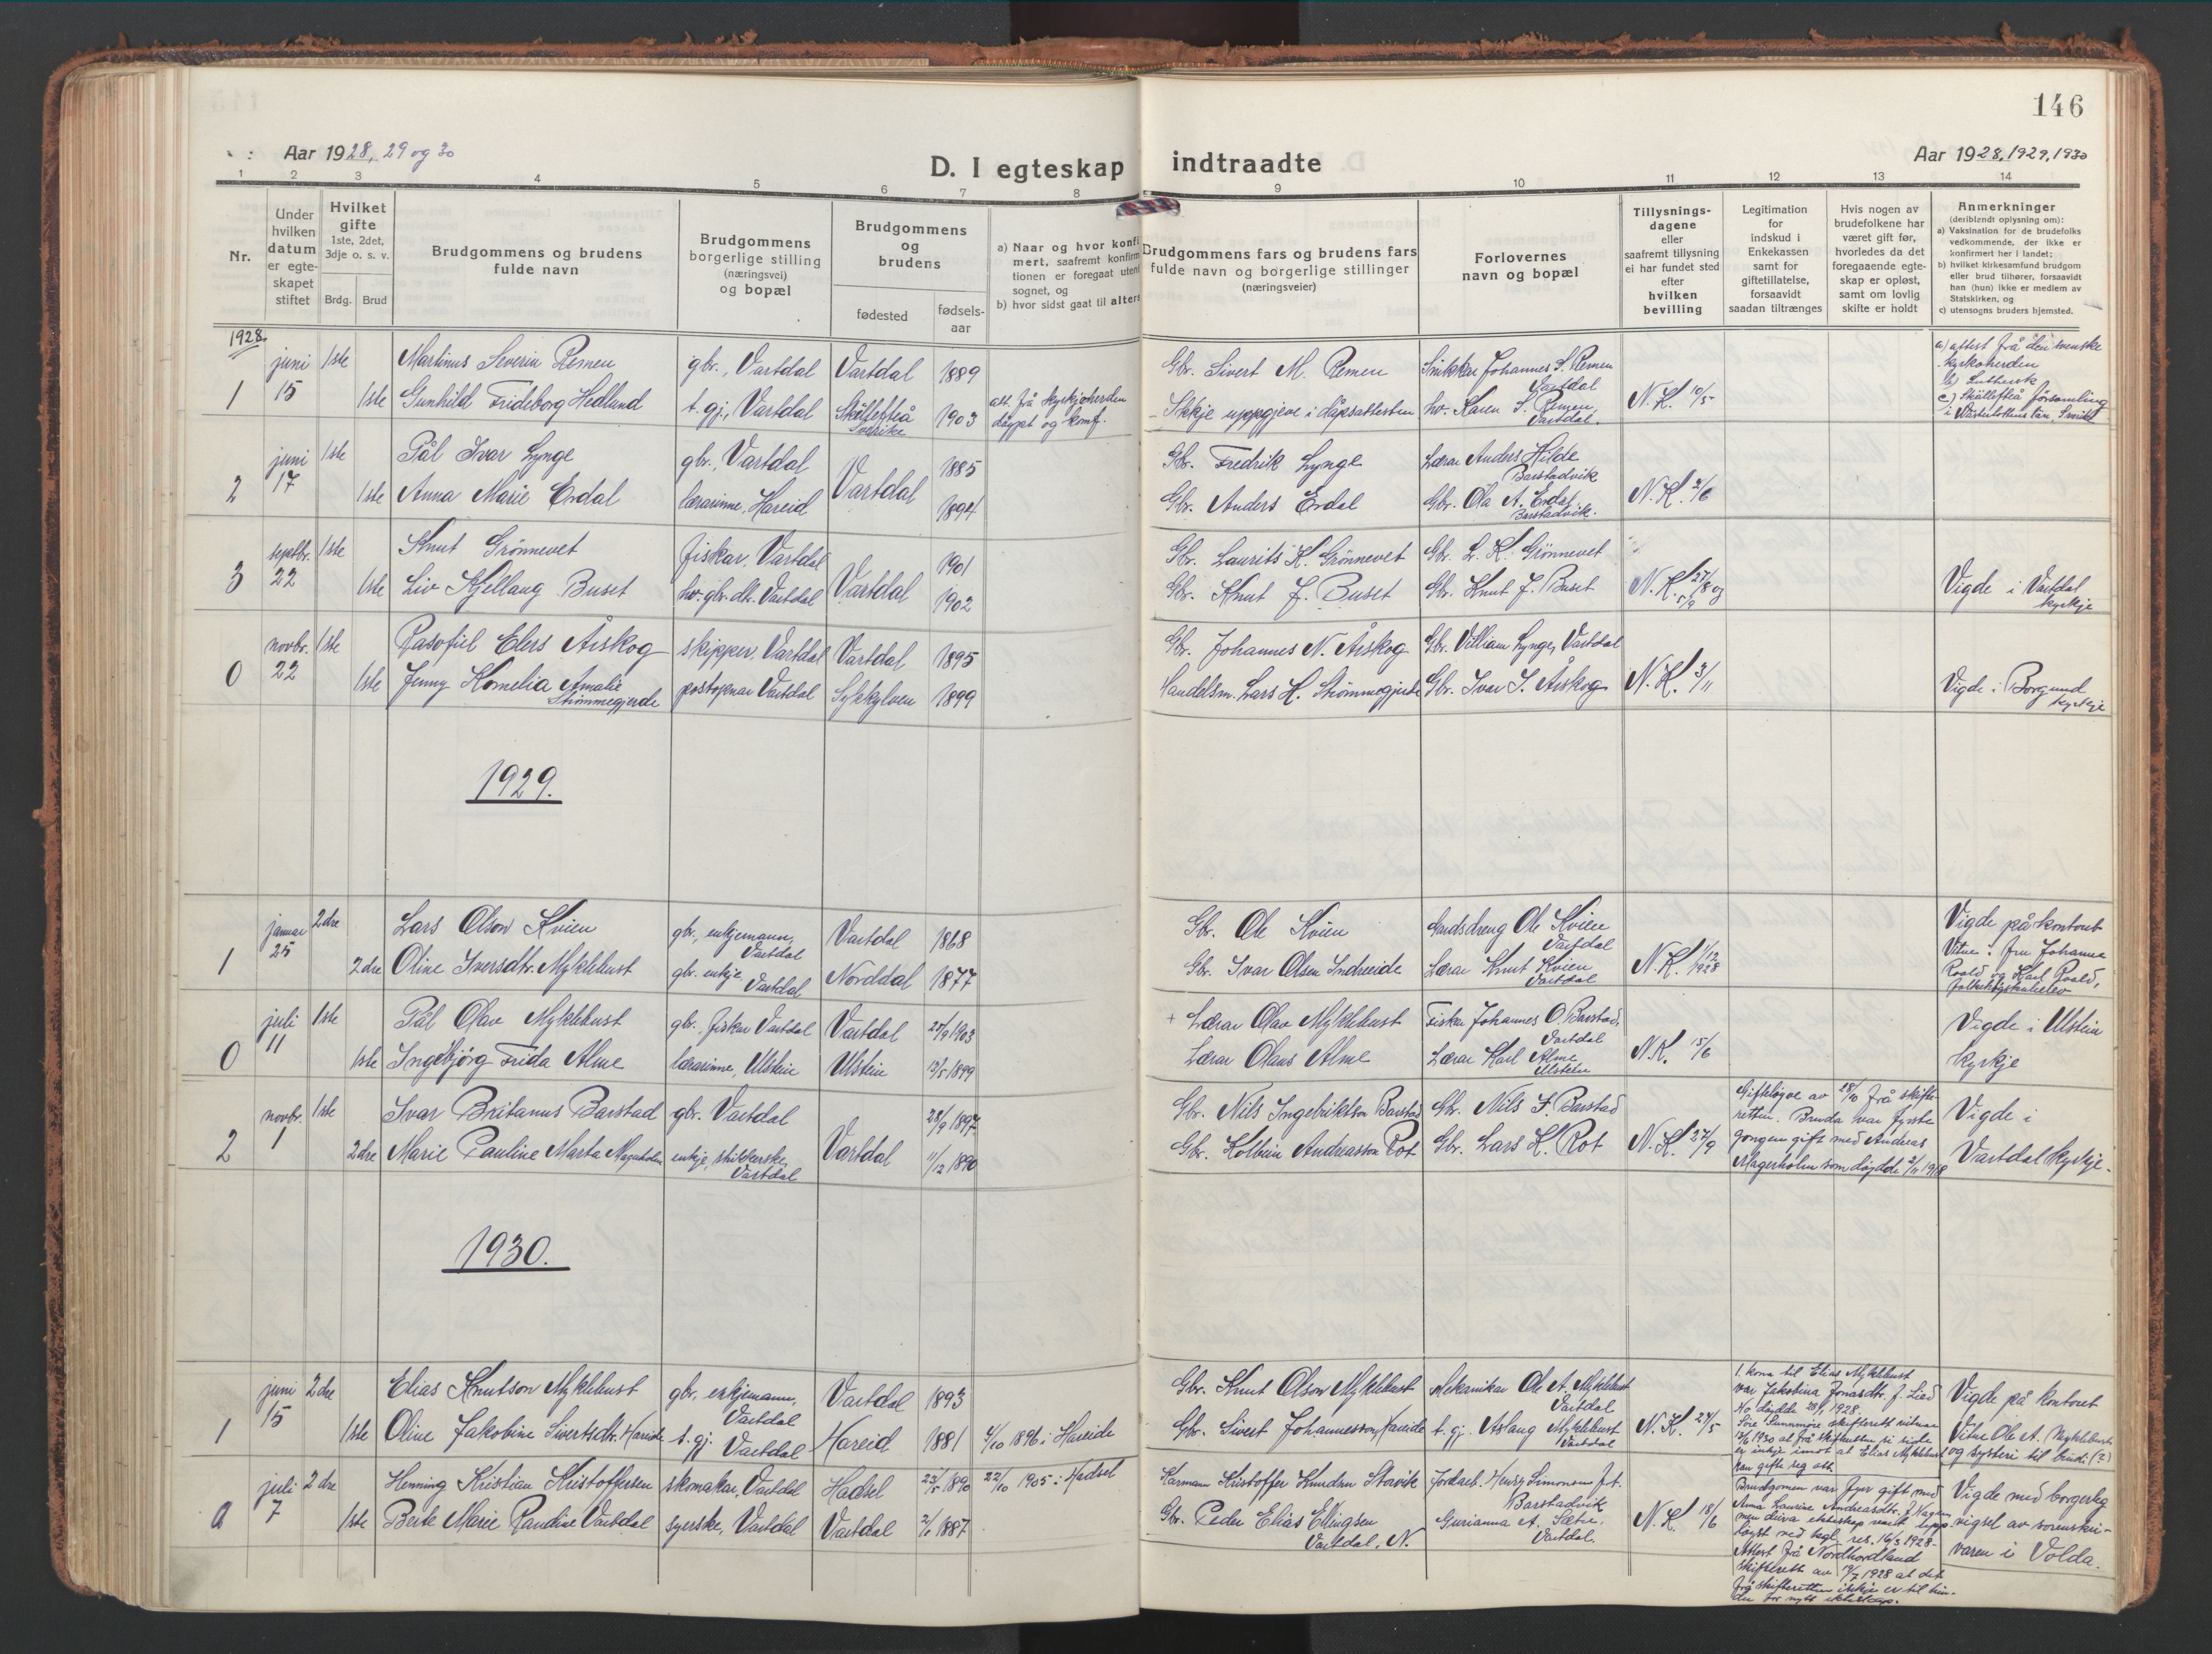 146
Aar 1928, 29 og 30
D. I egteskap indtraadte
Aar 1928, 1929, 1930
1 2 3 4 5 6 7 8 9 10 11 12 13 14
Nr.
Under
hvilken
datum
er egte-
skapet
stiftet
Hvilket
gifte
1ste, 2det,
3dje o. s. v.
Brdg. Brud
Brudgommens og brudens
fulde navn
Brudgommens
borgerlige stilling
(næringsvei)
og bopæl
Brudgommens
og
brudens
fødested
fødsels-
aar
a) Naar og hvor konfi
mert, saafremt konfirm
tionen er foregaat utent
sognet, og
b) hvor sidst gaat til alters
Brudgommens fars og brudens fars
fulde navn og borgerlige stillinger
(næringsveier)
Forlovernes
navn og bopæl
Tillysnings-
dagene
eller
saafremt tillysning
ei har fundet sted
efter
hvilken
bevilling
Legitimation
for
indskud i
Enkekassen
samt for
giftetillatelse,
forsaavidt
saadan tiltrænges
Hvis nogen av
brudefolkene har
været gift før,
hvorledes da det
foregaaende egte-
skap er opløst,
samt om lovlig
skifte er holdt
Anmerkninger
(deriblandt oplysning om):
a) Vaksination for de brudefolks
vedkommende, der ikke er
konfirmert her i landet;
b) hvilket kirkesamfund brudgom
eller brud tilhører, forsaavidt
han (hun) ikke er medlem av
Statskirken, og
c) utensogns bruders hjemsted.
1928.
1
juni
15
1ste
1ste
Martinus Severin Remen
Gunhild Frideborg Hedlund
gbr., Vartdal
t. gj., Vartdal
Vartdal
Skållefteå
Sverike
1889
1903
att. frå kyrkjoherden
døypt og konf.
Gbr. Sivert M. Remen
Ikkje uppgjeve i dåpsattesten
Snikkar Johannes S. Remen
Vartdal
hv. Karen S. Remen,
Vartdal.
N. K. 10/5
a) attest frå den svenske
kyrkoherden
b) Luthersk
c) Skållefteå församling
2
juni
17
1ste
1ste
Pål Ivar Lynge
Anna Marie Erdal
gbr., Vartdal
lærarinne, Hareid
Vartdal
1885
1894
Gbr. Fredrik Lynge
Gbr. Anders Erdal
Lærar Anders Hilde
Barstadvik
Gbr. Ola A. Erdal
Barstadvik.
N. K. 2/6
3
septbr.
22
1ste
1ste
Knut Grönnevet
Liv Kjellaug Buset
fiskar, Vartdal
hv. gbr. dtr. Vartdal
Vartdal
1901
1902
Gbr. Laurits K. Grönnevet
Gbr. Knut J. Buset
Gbr. L. K. Grönnevet
Gbr. Knut J. Buset
N. K. 27/8 og
5/9
Vigde i Vartdal
kyrkje
0
novbr.
22
1ste
1ste
Rasofiel Elers Årskog
Jenny Kornelia Amalie
Strømmegjerde
skipper, Vartdal
postopnar Vartdal
Vartdal
Sykkylven
1895
1899
Gbr. Johannes N. Årskog
Handelsm. Lars H. Strømmegjerde
Gbr. Villiam Lynge, Vartdal
Gbr. Ivar J. Årskog
N. K. 3/11
Vigde i Borgund
kyrkje
1929.
1
januar
25
2dre
2dre
Lars Olson Kvien
Oline Iversdtr. Myklebust
gbr., enkjemann,
Vartdal
gbr. enkje
Vartdal
Vartdal
Norddal
1868
1877
Gbr. Ole Kvien
Gbr. Ivar Olsen Indreeide
Gardsdreng Ole Kvien
Vartdal
Lærar Knut Kvien
Vartdal
N. K. 1/12
1928
Vigde på kontoret
Vitne: fru Johanne
Roald og Karl Roald,
folkehøgskuleelev
0
juli
11
1ste
1ste
Pål Olav Myklebust
Ingebjörg Frida Alme
gbr., fiskar Vartdal
lærarinne, Ulstein
Vartdal
Ulstein
25/9 1903
13/5 1899
+ Lærar Olav Myklebust
Lærar Olaus Alme
Fiskar Johannes O. Barstad,
Vartdal
Lærar Karl Alme
Ulstein
N. K. 15/6
Vigde i Ulstein
kyrkje
2
novbr.
1
1ste
2dre
Ivar Britanus Barstad
Marie Pauline Marta Magerholm
gbr. Vartdal
enkje, strikkerske,
Vartdal
Vartdal
28/9 1897
11/12 1890
Gbr. Nils Ingebriktson Barstad
Gbr. Kolbein Andreasson Rot
Gbr. Nils I. Barstad
Gbr. Lars K. Rot
N. K. 27/9
Gifteløyve av 28/10 frå skifte-
retten. Bruda var fyrste
gongen gift med Andreas
Magerholm som døydde 2/11 1918
Vigde i
Vartdal kyrkje.
1930.
1
juni
15
2dre
1ste
Elias Knutson Myklebust
Oline Jakobine Sivertsdtr. Hareide
gbr. enkjemann,
Vartdal
t. gj. Vartdal
Vartdal
Hareid
1893
1881
4/10 1896 i Hareide
Gbr. Knut Olson Myklebust
Gbr. Sivert Johannesson Hareide
Mekanikar Ole A. Myklebust
Vartdal
t. gj. Aslaug Myklebust
Vartdal
N. K. 24/5
1. kona til Elias Myklebust
var Jakobina Jonasdtr. f. Liad
Ho døydde 28/1 1928.
Søre Sunnmøre skifterett vitnar
13/6 1930 at frå skifteretten si side
er inkje imot at Elias Myklebust
kan gifte seg att
Vigde på kontoret
Vitne Ole A. Myklebust
og systeri til brudi (?)
2
juli
7
2dre
1ste
Henning Kristian Kristoffersen
Berte Marie Raudine Vartdal
skomakar, Vartdal
syerske, Vartdal
Hadsel
Vartdal
23/5 1890
2/1 1887
22/10 1905 i Hadsel
Karmann Kristoffer Knudsen Storvik
Gbr. Peder Elias Ellingsen
Vartdal, N.
Jordarb. Henry Simonsen f.t.
Barstadvik
Gurianna A. Sætre.
Vartdal.
N. K. 18/6
Brudgomen var fyrr gift med
Anna Laurine Andreasdtr. f.
men deira ekteskap vart upp-
løyst ved kogl. res. 16/3 1928-
Attest frå Nordhordland
Skifterett av 19/7 1928 at det
frå skifteretten ikkje er til hin-
der for nytt ekteskap.
Vigde med borgarleg
vigsel av sorenskri-
varen i Volda.